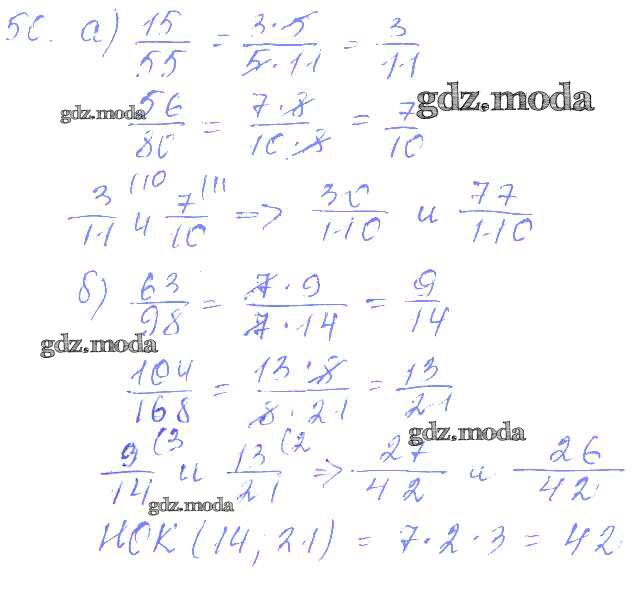 50. а) 15/55 = 3·5/5·11 = 3/11
gdz.moda
gdz.moda
56/80 = 7·8/10·8 = 7/10
3/11 (10 и 7/10 (11 => 30/110 и 77/110
б) 63/98 = 7·9/7·14 = 9/14
gdz.moda
104/168 = 13·8/8·21 = 13/21
gdz.moda
9/14 (3 и 13/21 (2 => 27/42 и 26/42
gdz.moda
НОК (14; 21) = 7·2·3 = 42